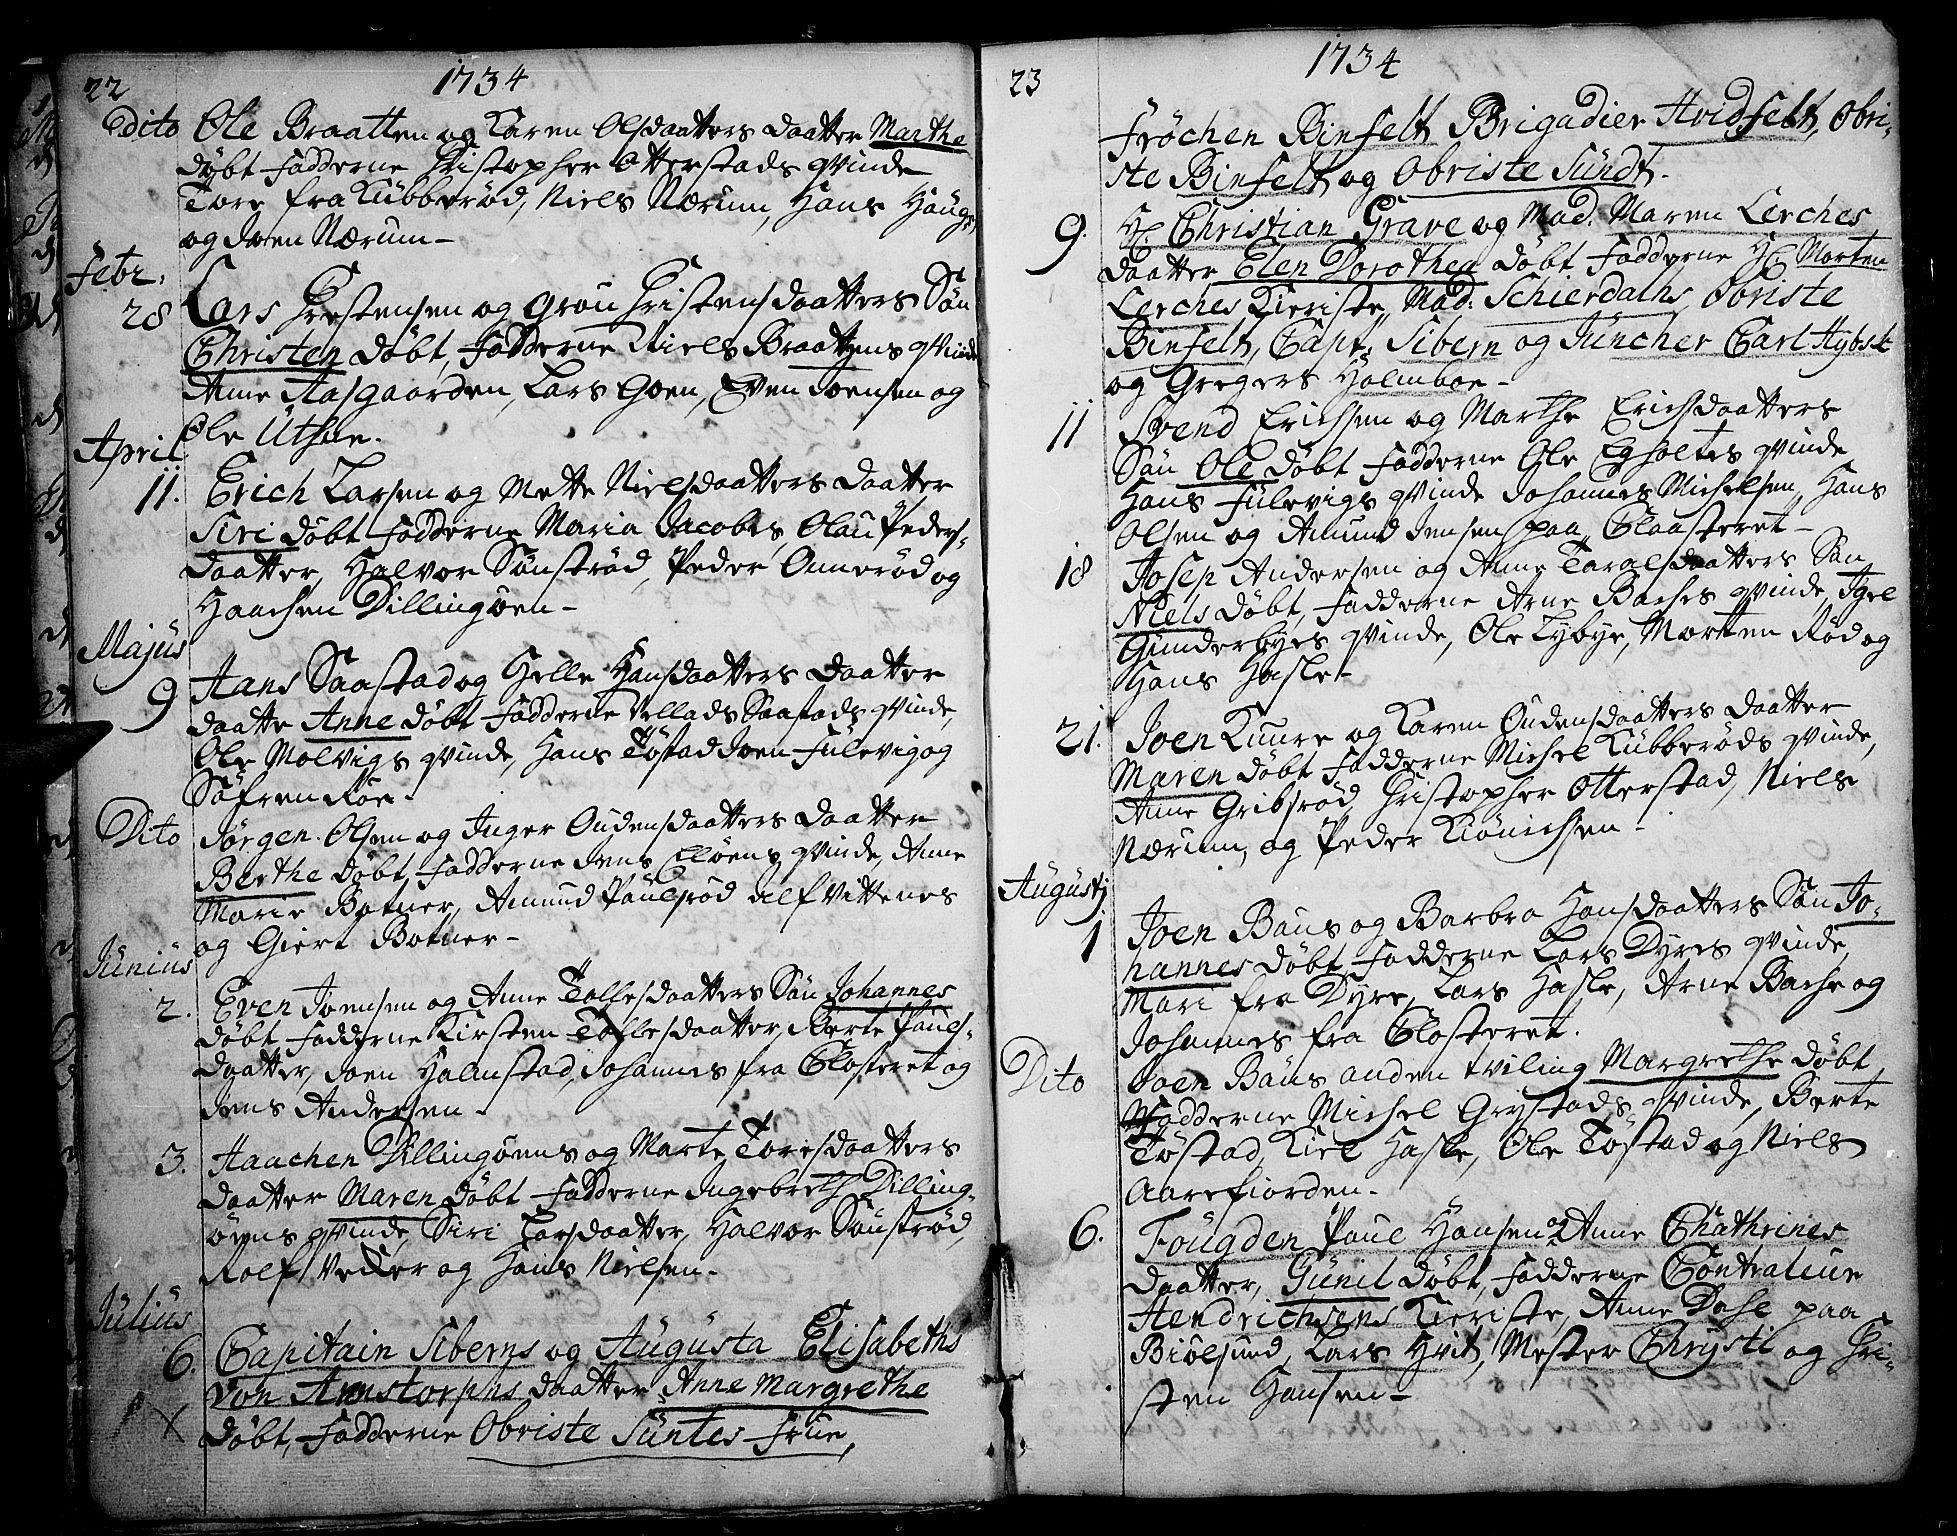 22
1734
Dito Ole Braatten og Karen Olsdaatters daatter Marthe
døbt Fadderne Christopher Otterstads qvinde
Tore fra Kubberød, Niels Nærum, Hans Haug
og Joen Nærum-
Febr.
28 Lars Christensen og Grou Christensdaatters Søn
Christen døbt, Fadderne Niels Braatens qvinde
Anne Aasgaarden, Lars Goen, Even Joensen og
Ole Uthue.
April
11. Erich Larsen og Mette Nielsdaatters daatter
Siri døbt Fadderne Maria Jacobs, Olau Peders-
daatter, Halvor Sønstrød, Peder Ommerød og
Haachen Dillingøen-
Majus
9 Hans Saastad og Helle Hansdaatters daatter
daatte Anne døbt Fadderne Vellads Saastads qvinde,
Ole Molvigs qvinde, Hans Tøstad Joen Fulevig og
Søfren Røe.
Dito Jørgen Olsen og Inger Oudensdaatters daatter
Berthe døbt, Fadderne Jens Eløens qvinde, Anne
Marie Botner, Amund Paulsrød Alf Vittenes
og Giert Botner-
Junius
2. Even Joensen og Anne Tollesdaatters Søn Johannes
døbt Fadderne Kirsten Tollesdaatter, Berte Pauls-
daatter, Joen Halmstad, Johannes fra Closteret og
Jens Andersen.
3. Haachen Dillingøens og Marte Toresdaatters
daatter Maren døbt Fadderne Ingebreth Dilling-
øens qvinde, Siri Larsdaatter, Halvor Sønstrød,
Rolf Vecker og Hans Nielsen.
Julius
6. Capitain Siberns og Augusta Elisabeths
von Arnstorphs daatter Anne Margrethe
døbt, Fadderne Obriste Suntes Frue,
23
1734
Frøchen Binfelt Brigadier Hvidfelt, Obri-
ste Binfelt og Obriste Sundt.
9. Hr. Christian Grave og Mad. Maren Lerches
daatter Elen Dorothea døbt Fadderne Hr. Morten
Lerches Kieriste, Mad. Schierdahs, Obriste
Binfelt, Capt. Sibern og Juncher Carl Hybst
og Gregers Holmboe-
11 Svend Erichsen og Marthe Erichsdaatters
Søn Ole døbt Fadderne Ole Egholtes qvinde
Hans Fulevigs qvinde Johannes Michelsen, Hans
Olsen og Amund Jensen paa Claasteret-
18 Josep Andersen og Anne Taralsdaatters Søn
Niels døbt, Fadderne Arne Baches qvinde, Igel
Gunderbyes qvinde, Ole Lybye, Morten Rød og
Hans Hasle-
21. Joen Kuure og Karen Oudensdaatters daatter
Maren døbt Fadderne Michel Kubberøds qvinde,
Anne Gribsrød, Christopher Otterstad, Niels
Nærum, og Peder Kiønichsen-
Augustj
1 Joen Baus og Barbra Hansdaatters Søn Jo-
hannes døbt Fadderne Lars Dyres qvinde,
Mari fra Dyre, Lars Hasle, Arne Bache og
Johannes fra Closteret.
Dito Joen Baus anden tviling Margrethe døbt
Fadderne Michel Grystads qvinde, Berte
Tøstad, Kiel Hasle, Ole Tøstad og Niels
Aarefiorden.
6. Fougden Paul Hansen og Anne Chathrines
daatter, Gunil døbt, Fadderne Contraleur
Hendrichsens Kieriste, Anne Dahl paa
Biølsund, Lars Hvit, Mester Chrysti og Chri-
sten Hansen-